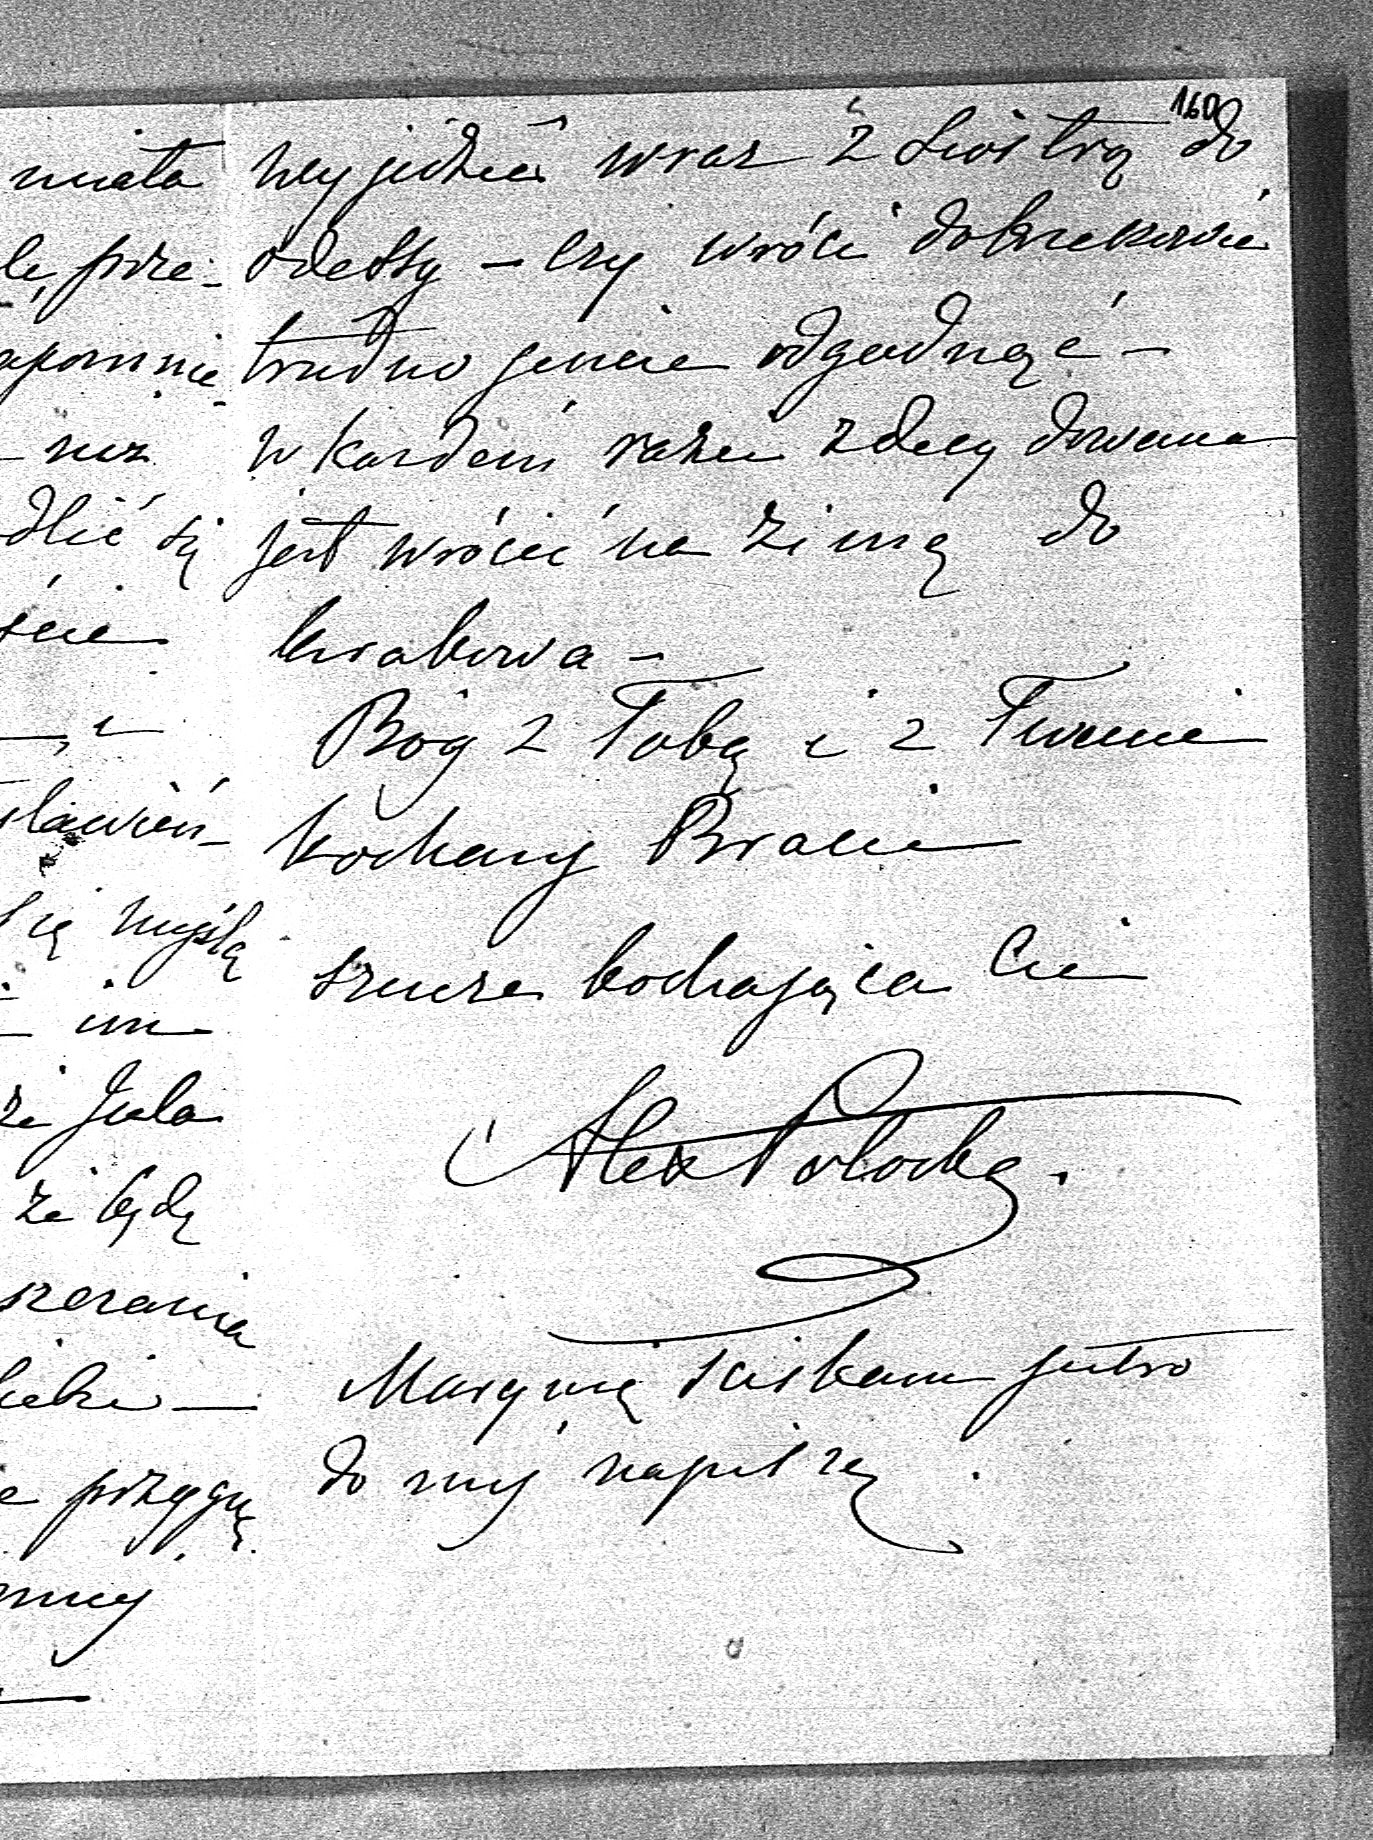 160
miała
lę prze-
apomnie-
- niz
dlić się
ście
-, i
sławień-
się myślą
- im
że Jula
że będę
szerania
- przygnę
wyjedzie wraz z Siostrą do
Odessy - czy wróci do Krzeszowic
trudno jeszcze odgadnąć -
w kazdem razie zdecydowana
jest wrócić na zimę do
Krakowa -
Bóg z Tobą i z Twemi
kochany Bracie
szczerze kochająca Cię
Alex Potocka.
Marynię ściskam jutro
do niéj napiszę.